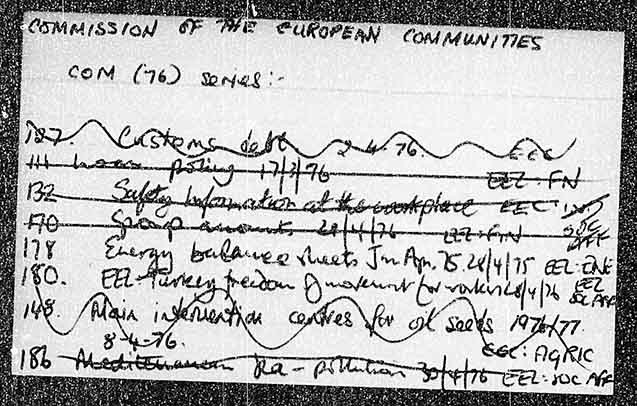 COMMISSION OF THE EUROPEAN COMMUNITIES
COM ('76) series:-
127. Customs debt 2-4-76. EEC
111 policy 17/3/76 EEC: FN
132 Safety Information at the workplace EEC
170 Group accounts 28/4/76 EEC: FIN SOC AFF
178 Energy balance sheets Jan Apr. 75. 28/4/75 EEC: ENE
180. EEC-Turkey freedom of movement for workers 28/4/76 EEC SOC AFF
148. Main intervention centres for oil seeds 1976/77.
8-4-76. EEC: AGRIC
186 Mediterranean Sea-pollution 30/4/76 EEC: SOC AFF